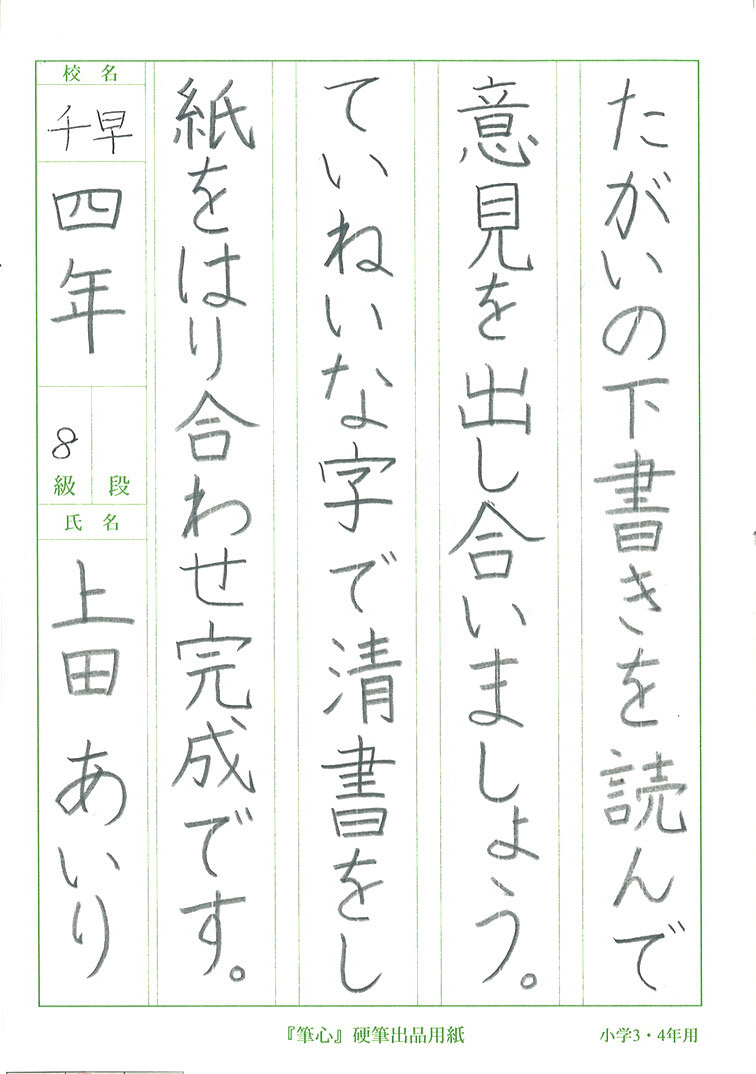 たがいの下書きを読んで
意見を出し合いましょう。
ていねいな字で清書をし
紙をはり合わせ完成です。
校名
千早
四年
8
級
段
氏名
上田 あいり
『筆心』硬筆出品用紙
小学3・4年用